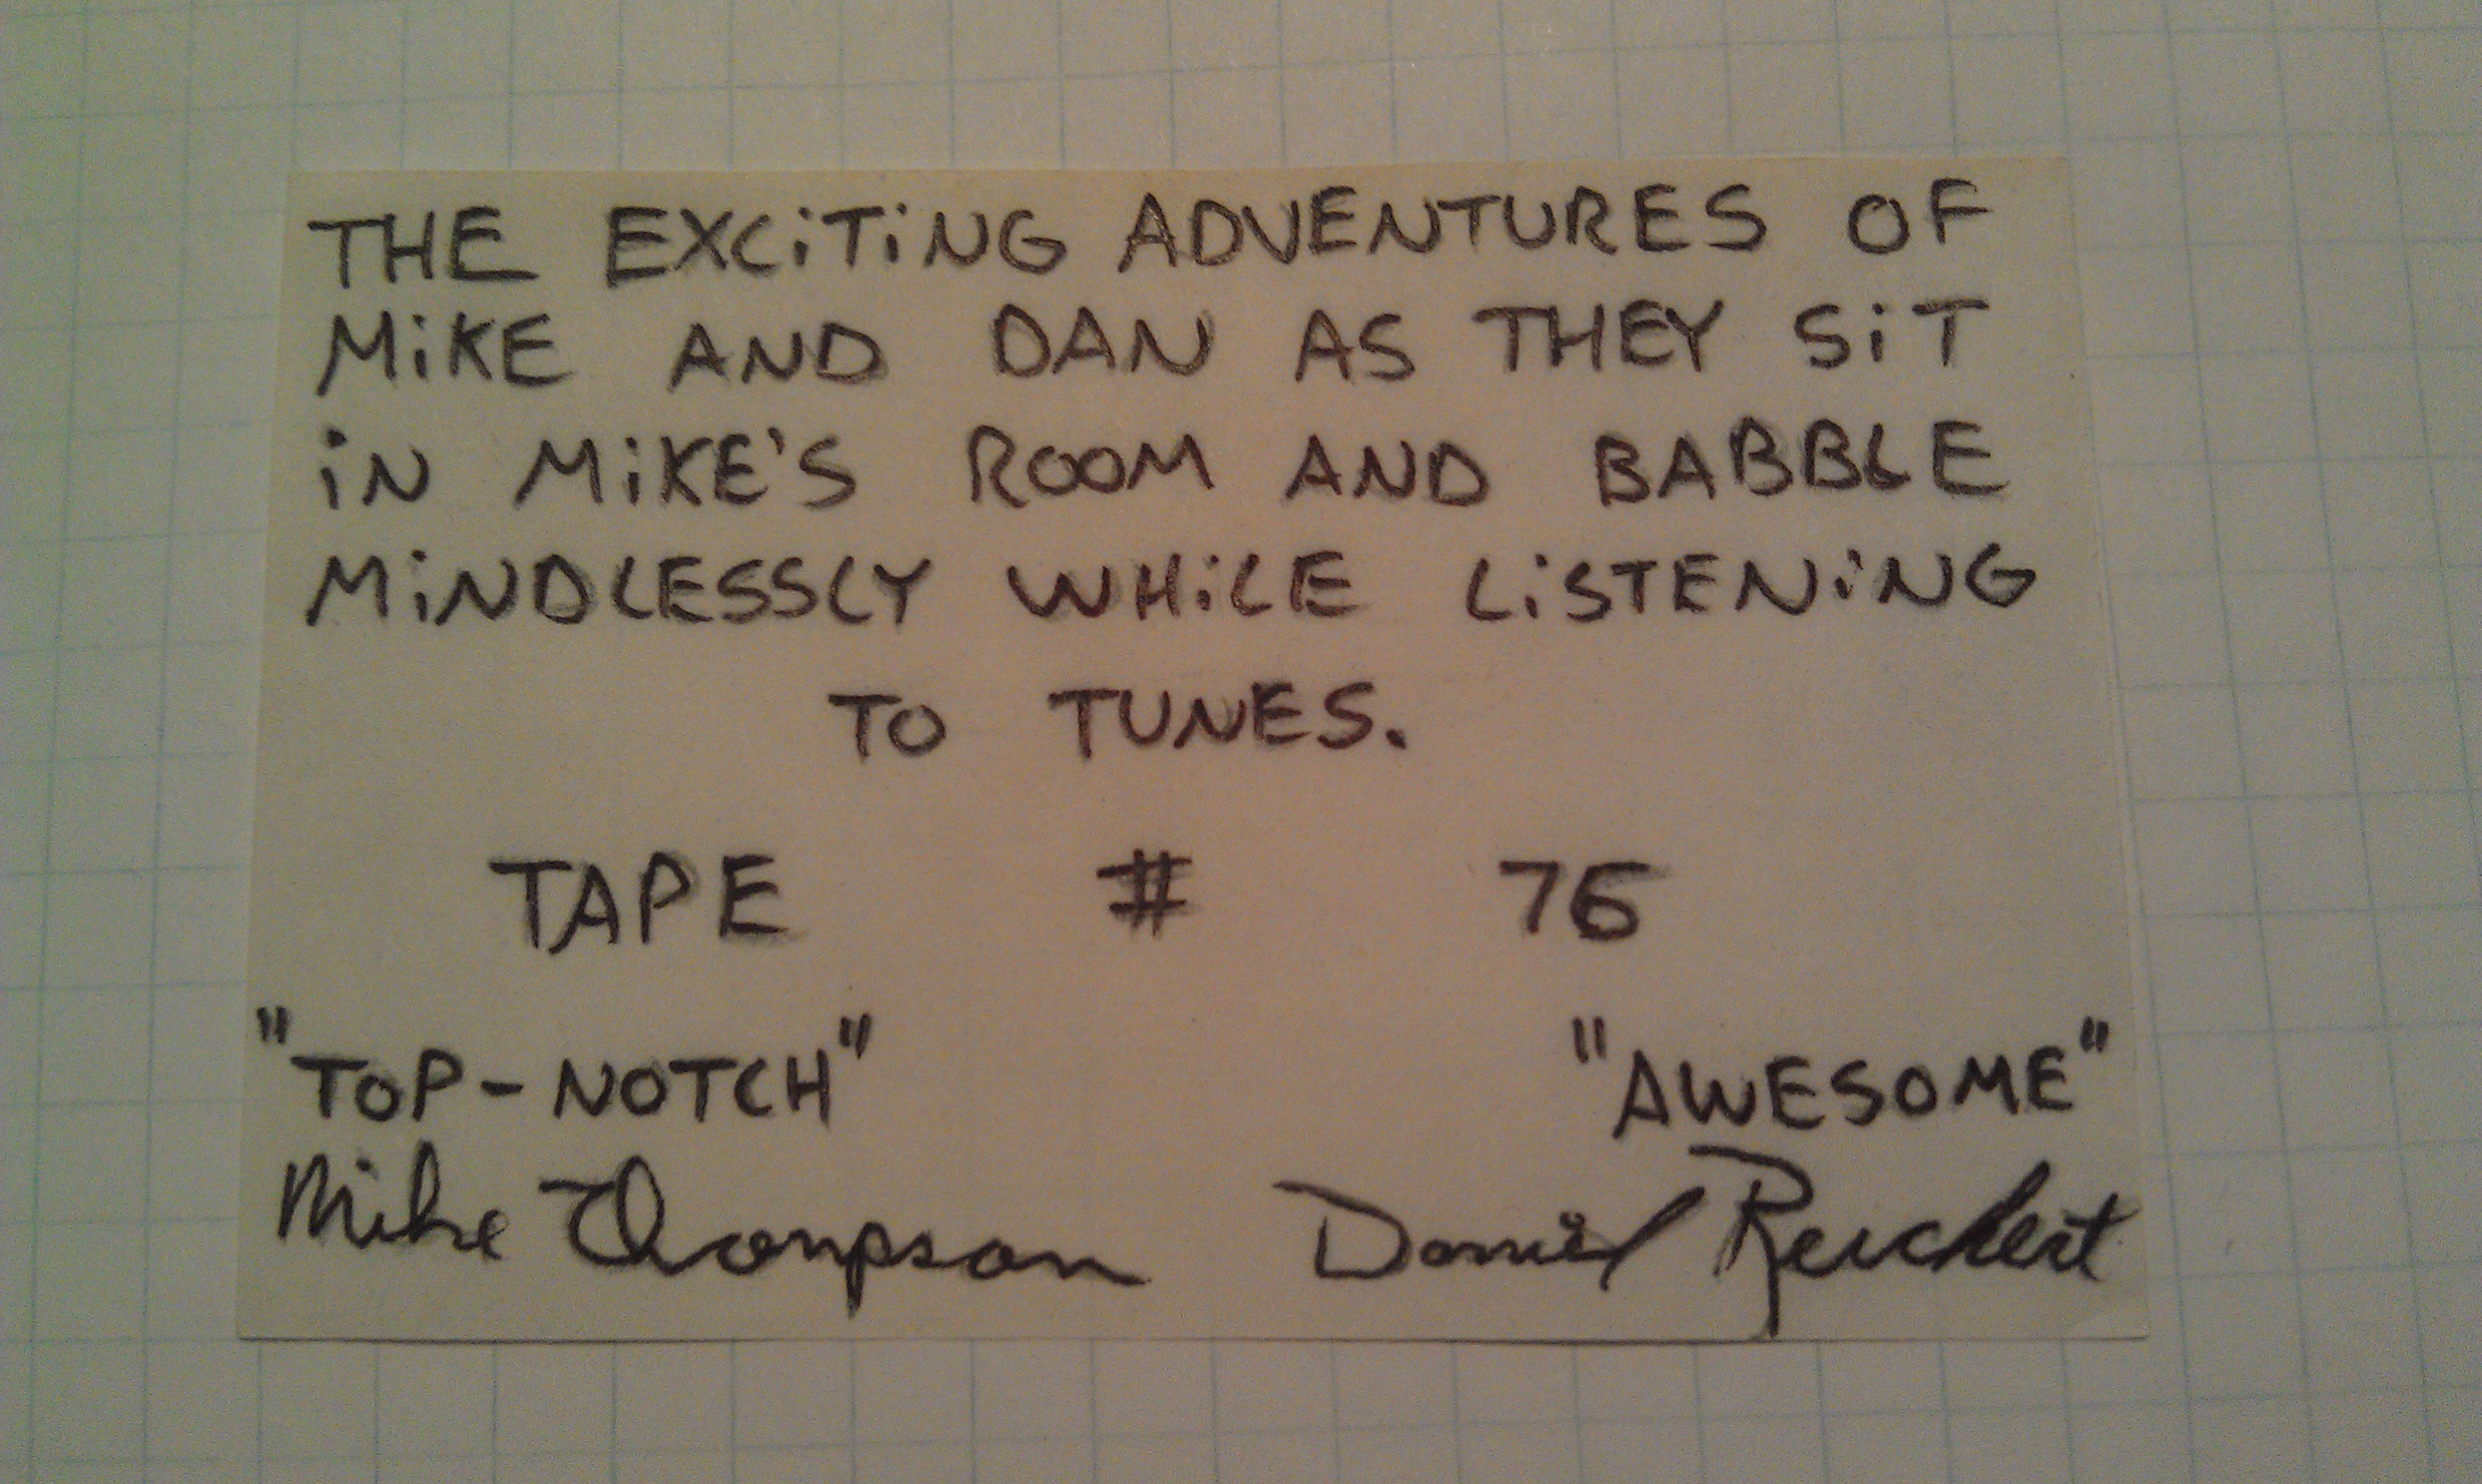 THE EXCiTiNG ADVENTURES OF
MiKE AND DAN AS THEY SiT
iN MiKE'S ROOM AND BABBLE
MiNDLESSLY WHiLE LiSTENiNG
TO TUNES.
TAPE # 76
"TOP-NOTCH" "AWESOME"
Mike Thompson Daniel Reichert